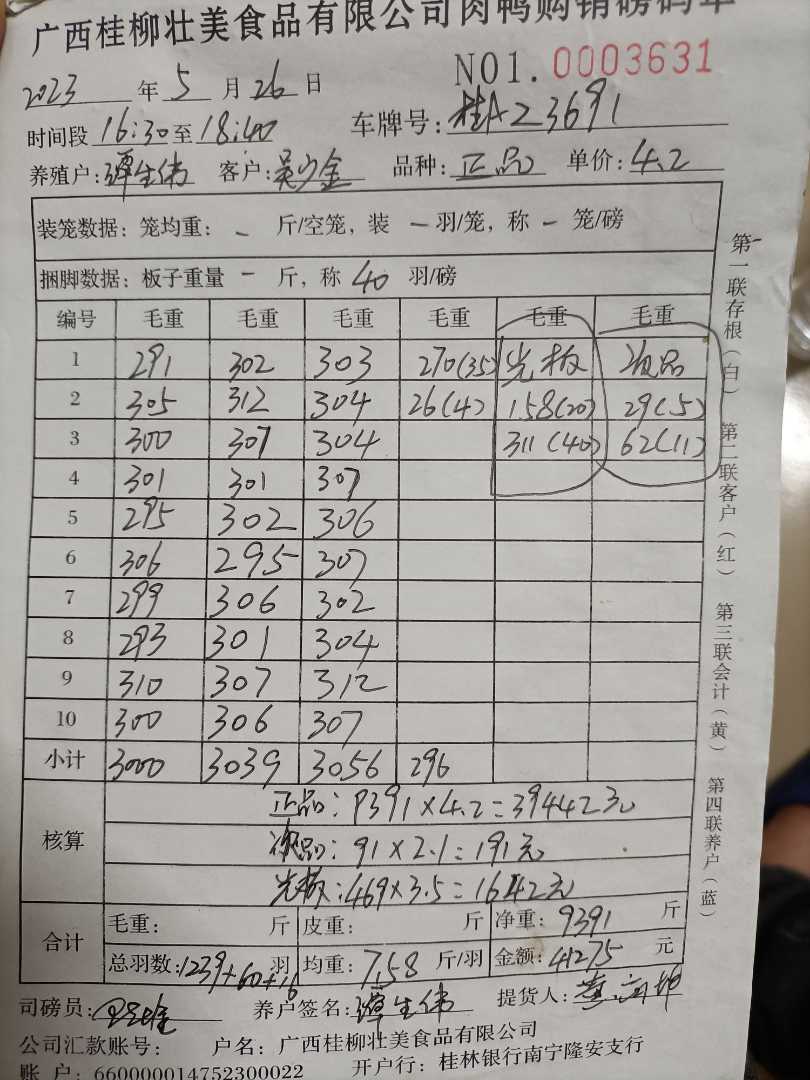 广西桂柳壮美食品有限公司肉鸭购销磅码单
2023 年 5 月 26 日 NO1. 0003631
时间段 16:30 至 18:40 车牌号: 桂A23691
养殖户: 谭生伟 客户: 吴少金 品种: 正品 单价: 4.2
装笼数据: 笼均重: - 斤/空笼, 装 - 羽/笼, 称 - 笼/磅
捆脚数据: 板子重量 - 斤, 称 40 羽/磅
编号 毛重 毛重 毛重 毛重 毛重 毛重
1 291 302 303 270(35) 光板 次品
2 305 312 304 26(4) 158(20) 29(5)
3 300 307 304 311(40) 62(11)
4 301 301 307
5 295 302 306
6 306 295 307
7 299 306 302
8 293 301 304
9 310 307 312
10 300 306 307
小计 3000 3039 3056 296
核算
正品: 9391×4.2=39442元
次品: 91×2.1=191元
光板: 469×3.5=1642元
合计
毛重: 斤 皮重: 斤 净重: 9391 斤
总羽数: 1239+60+16 羽 均重: 7.58 斤/羽 金额: 41275 元
司磅员: 养户签名: 谭生伟 提货人:
公司汇款账号: 户名: 广西桂柳壮美食品有限公司
账 户: 660000014752300022 开户行: 桂林银行南宁隆安支行
第一联存根(白) 第二联客户(红) 第三联会计(黄) 第四联养户(蓝)